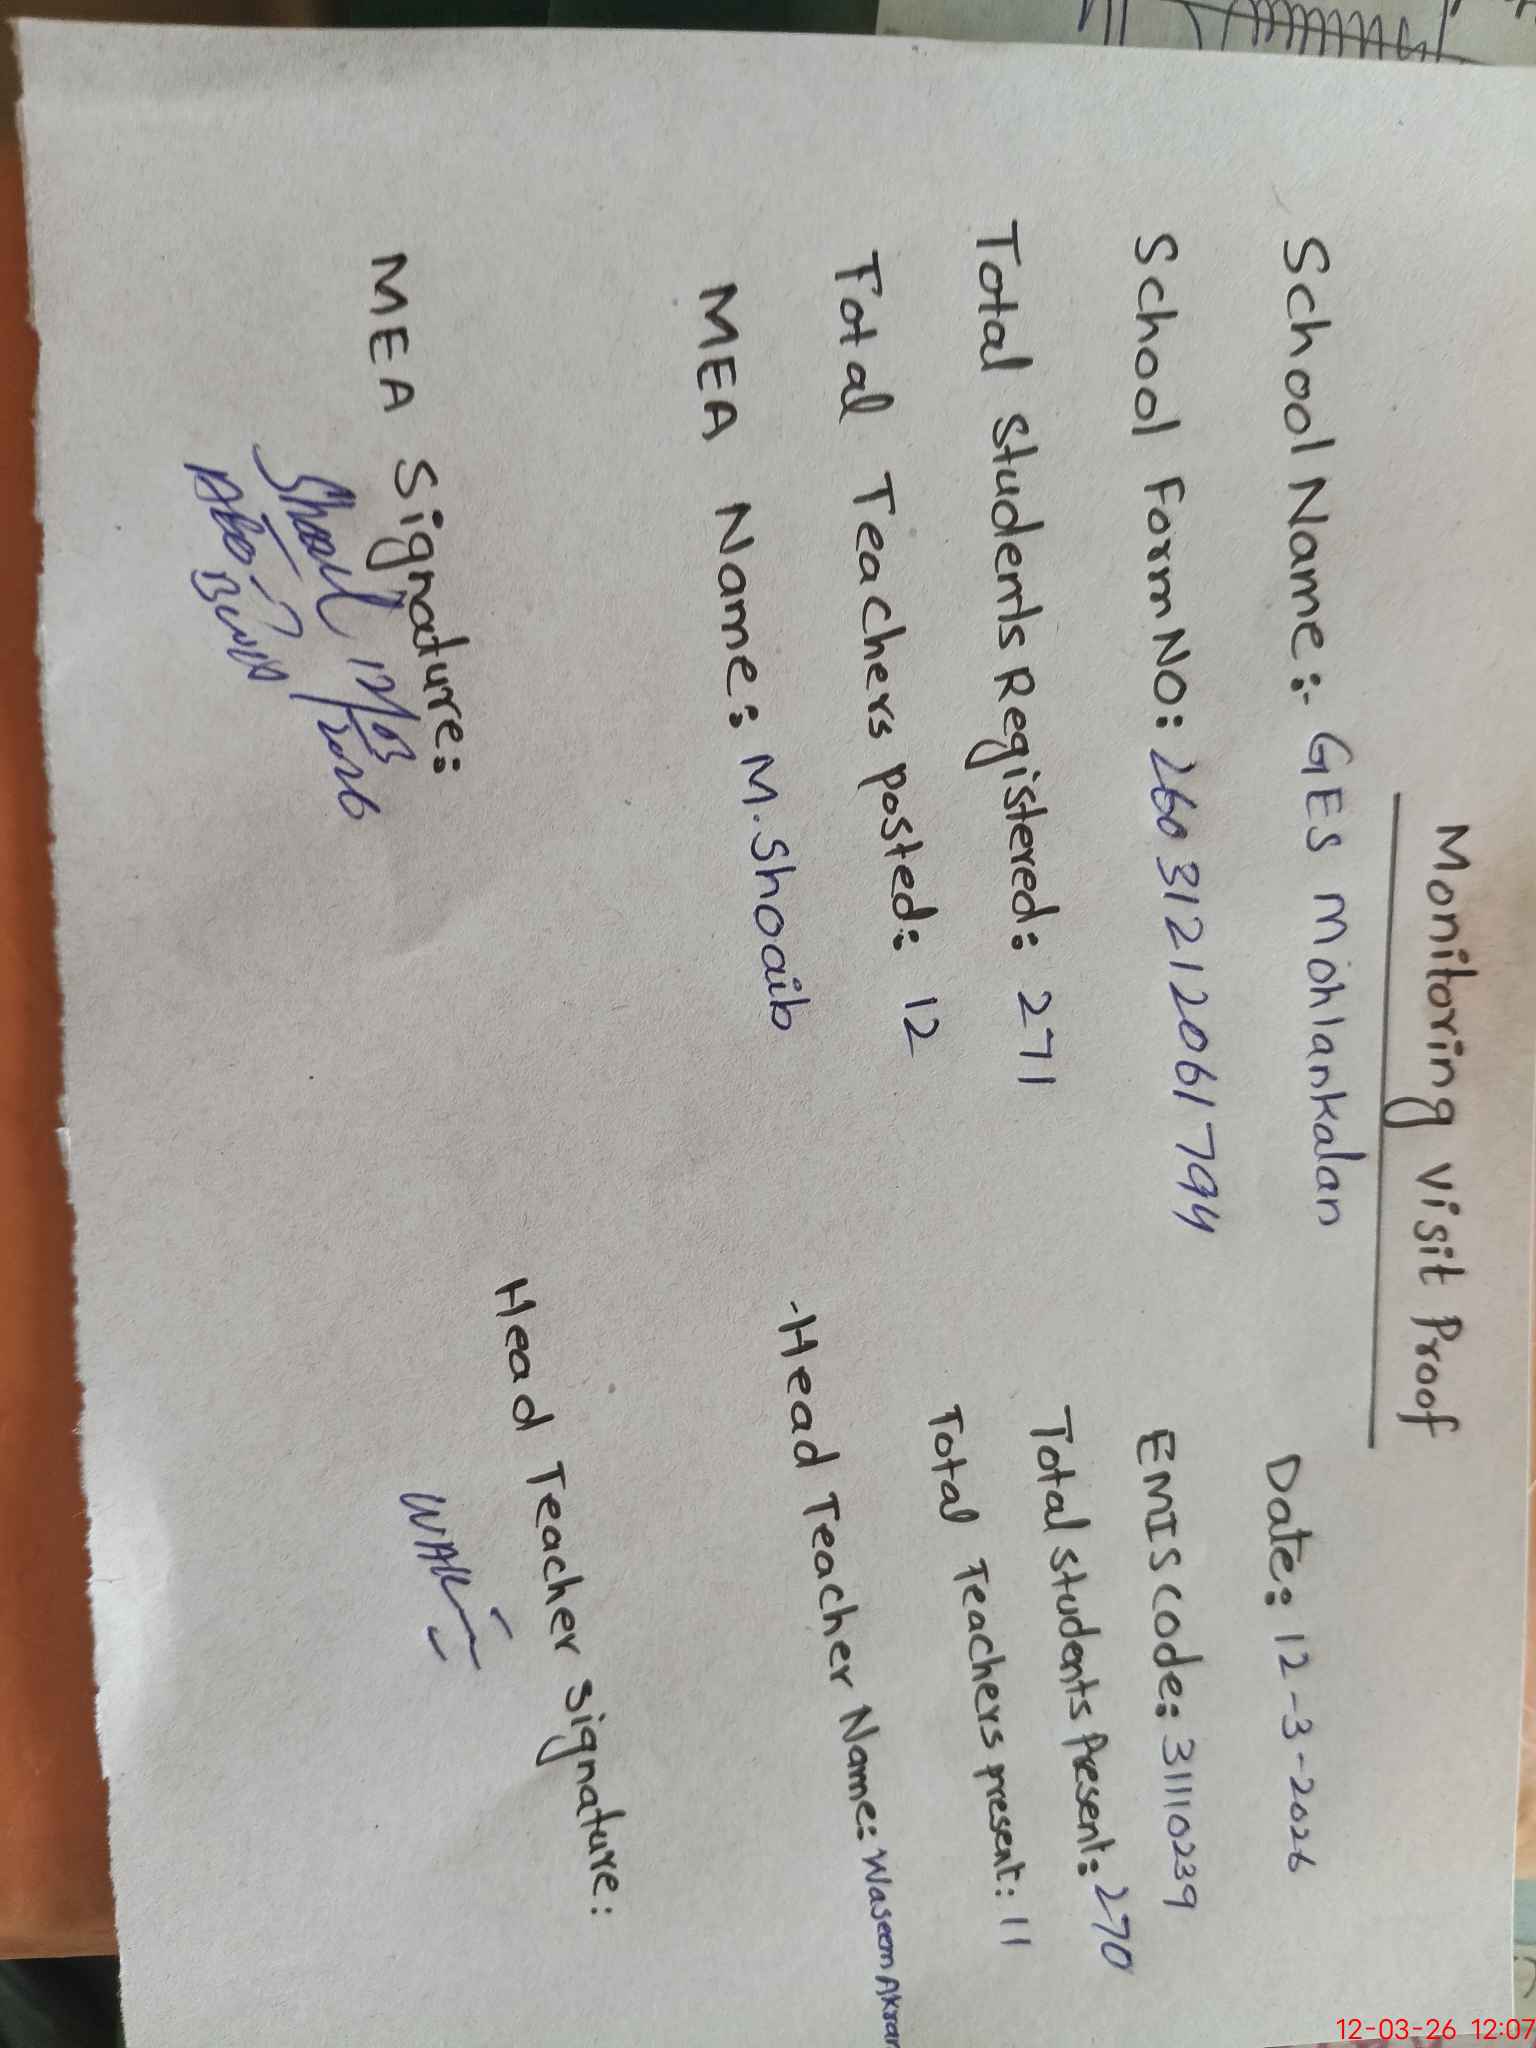 Monitoring visit Proof
School Name:- GES Mohlankalan Date: 12-3-2026
School Form NO: 26031212061794 EMIS code: 31110239
Total students Registered: 271 Total students Present: 270
Total Teachers posted: 12 Total Teachers present: 11
MEA Name: M.Shoaib -Head Teacher Name: Waseem Akram
MEA Signature: Head Teacher signature:
12/03/2026
12-03-26 12:07